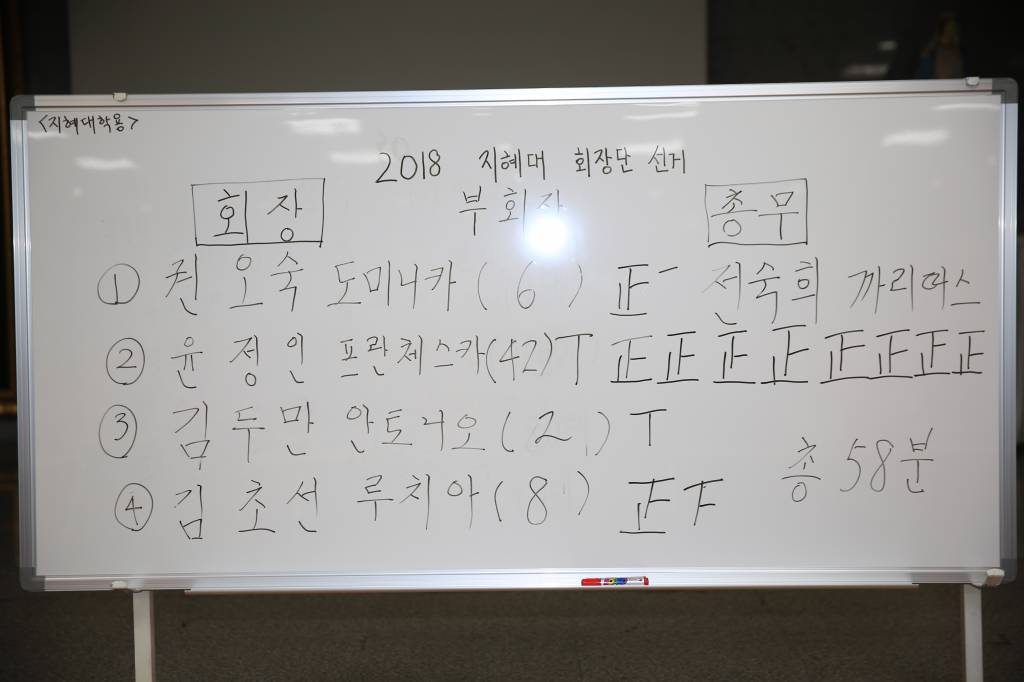 <지혜대학용>
2018 지혜대 회장단 선거
회장 부회장 총무
① 권오숙 도미니카 (6) 正一 전숙희 까리따스
② 윤정인 프란체스카 (42) T 正正正正正正正正
③ 김두만 안토니오 (2) T
④ 김초선 루치아 (8) 正F
총 58분